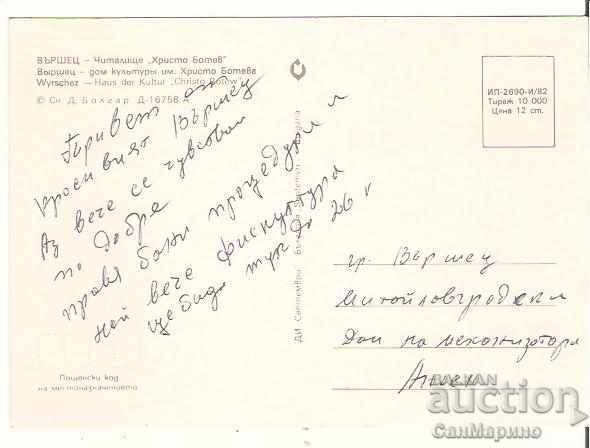 ВЪРШЕЦ – Читалище „Христо Ботев"
Вършец – дом культуры им. Христо Ботева
Wyrschez – Haus der Kultur „Christo Botew"
© Сн. Д. Болгар Д-16758 А
ИЛ-2690-И/82
Тираж 10 000
Цена 12 ст.
Привет от
красивият Вършец
Аз вече се чувствам
по добре
правя бани процедури и
най вече физкултура
ще бъда тук до 26 
ДИ Септември България
гр. Вършец
Михайловградски
Дом на механизатора
Пощенски код
на местоназначението
BALKAN
auction
СанМарино